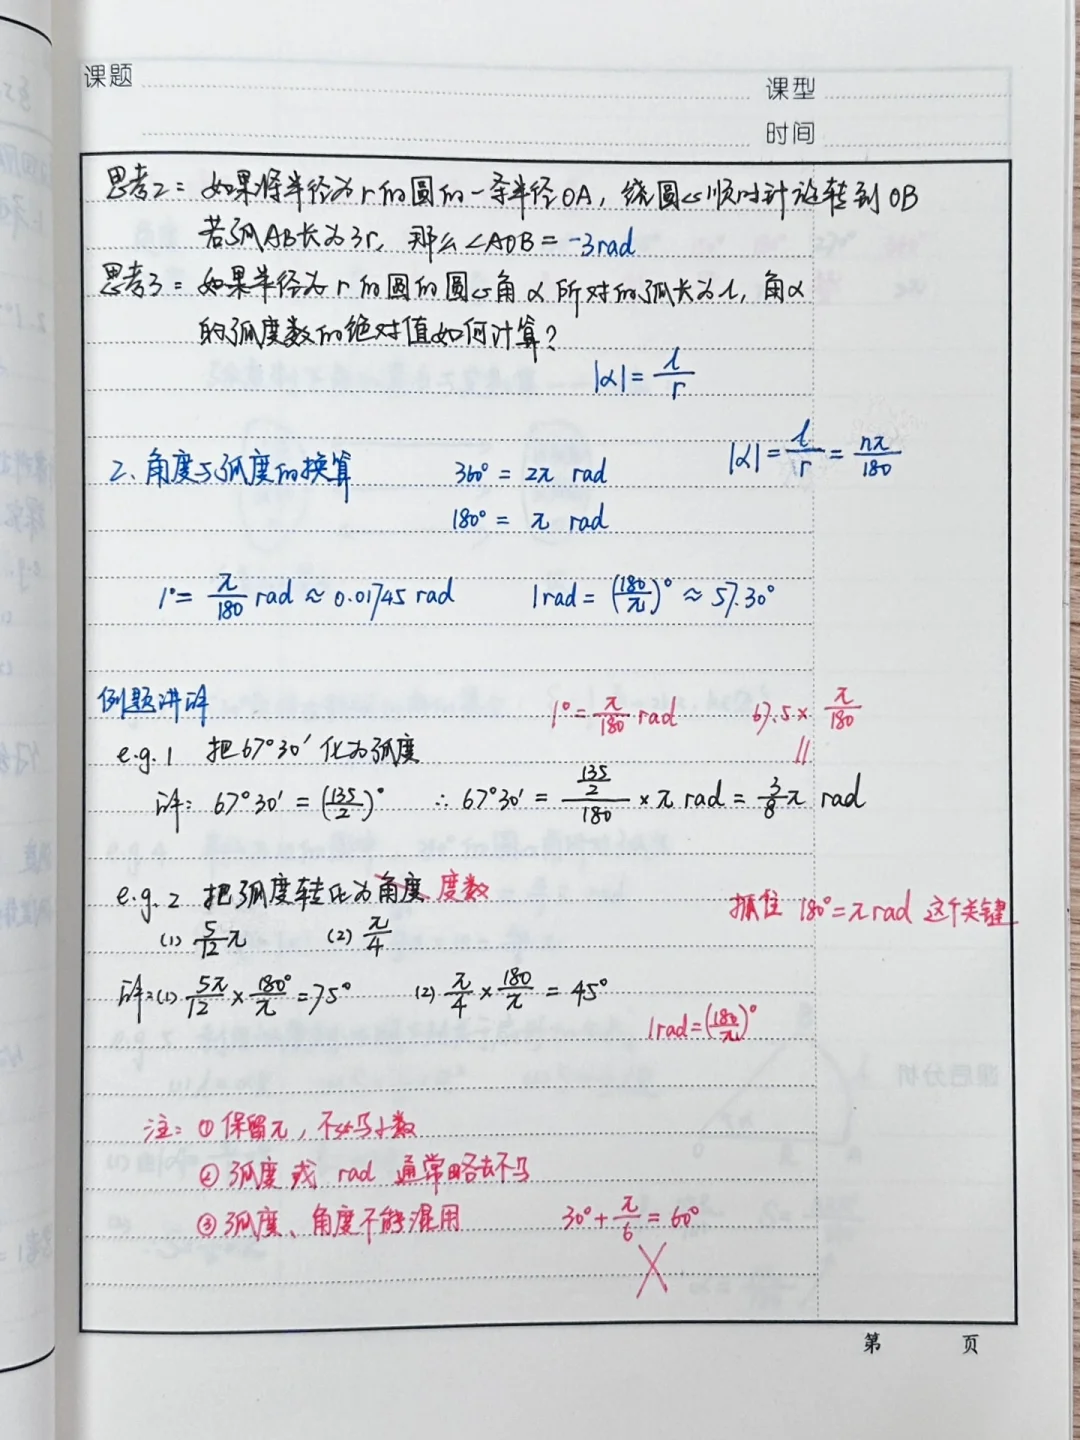 课题
课型
时间
思考2：如果将半径为r的圆的一条半径OA，绕圆心顺时针旋转到OB
若弧AB长为3r，那么∠AOB＝-3rad
思考3：如果半径为r的圆的圆心角α所对的弧长为l，角α
的弧度数的绝对值如何计算？
|α|=l/r
2、角度与弧度的换算 360°=2π rad |α|=l/r=nπ/180
180°=π rad
1°=π/180 rad≈0.01745 rad 1rad=(180/π)°≈57.30°
例题讲解 1°=π/180 rad 67.5×π/180
e.g.1 把67°30′化为弧度 ||
解：67°30′=(135/2)° ∴67°30′=(135/2)/180×π rad=3/8π rad
e.g.2 把弧度转化为角度 度数 抓住 180°=π rad 这个关键
(1) 5/12π (2) π/4
解：(1) 5π/12×180°/π=75° (2) π/4×180/π=45°
1rad=(180/π)°
注：①保留π，不必写小数
②弧度 或 rad 通常略去不写
③弧度、角度不能混用 30°+π/6=60°
╳
第 页